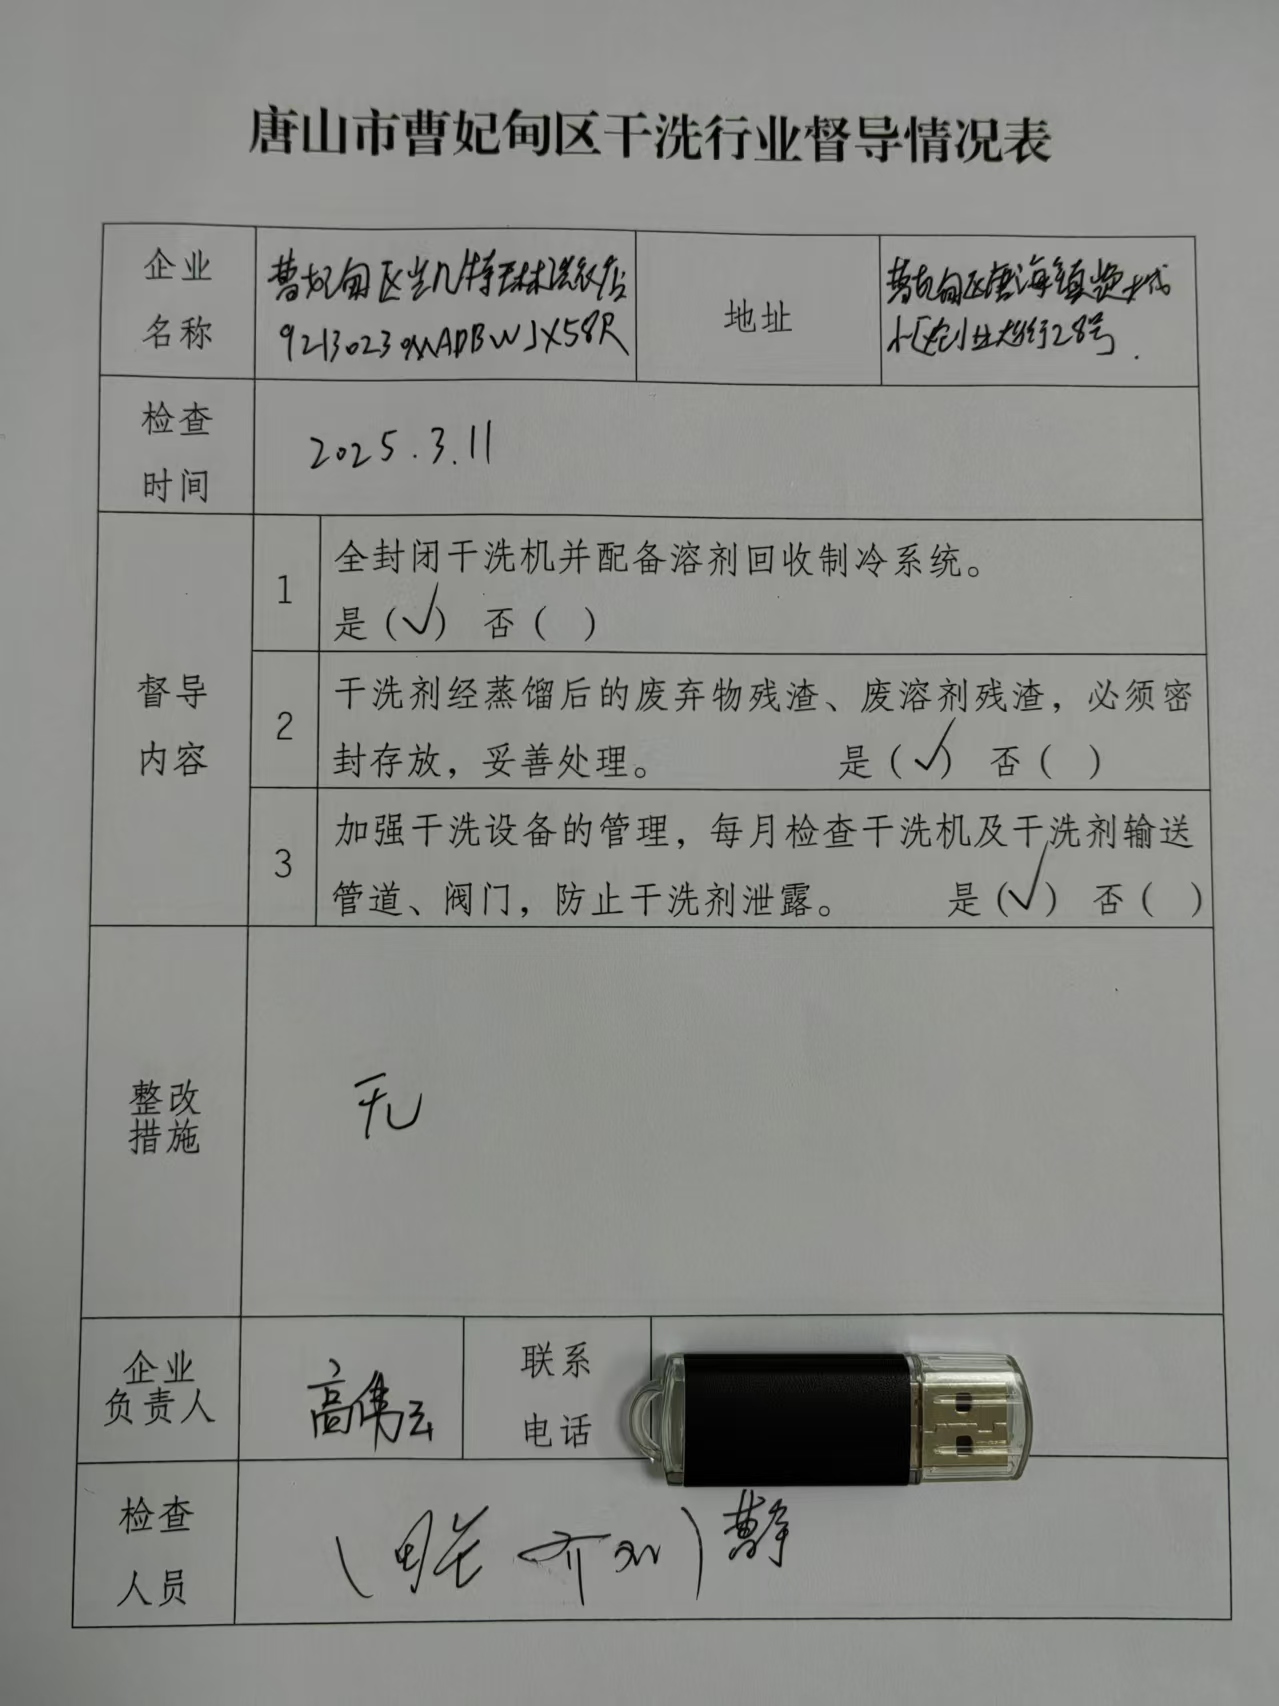 唐山市曹妃甸区干洗行业督导情况表
企业
名称
曹妃甸区
洗衣店
92130230MADBWJX58R
地址
曹妃甸区唐海镇
小区创业大街28号
检查
时间
2025.3.11
督导
内容
1
全封闭干洗机并配备溶剂回收制冷系统。
是(√) 否( )
2
干洗剂经蒸馏后的废弃物残渣、废溶剂残渣，必须密
封存放，妥善处理。 是(√) 否( )
3
加强干洗设备的管理，每月检查干洗机及干洗剂输送
管道、阀门，防止干洗剂泄露。 是(√) 否( )
整改
措施
无
企业
负责人
高伟云
联系
电话
检查
人员
曹静